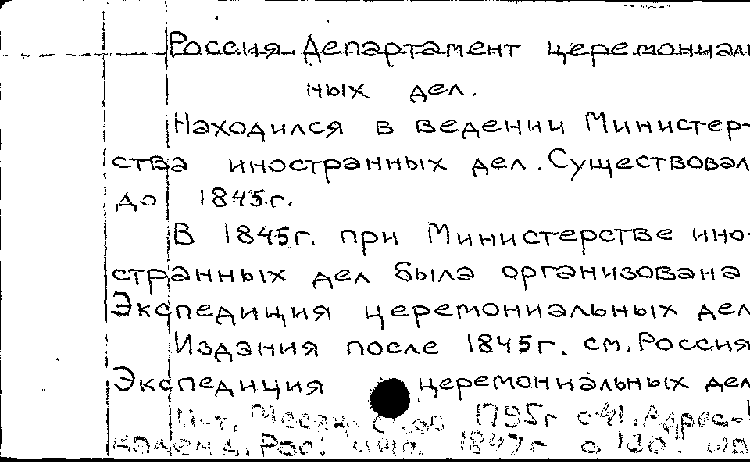 Россия. Департамент церемониаль
ных дел.
Находился в ведении Министер-
ства иностранных дел. Существовал
до 1845г.
В 1845г. при Министерстве ино-
странных дел была организована
Экспедиция церемониальных дел
Издания после 1845г. см. Россия
Экспедиция церемониальных дел
1795г
1847г